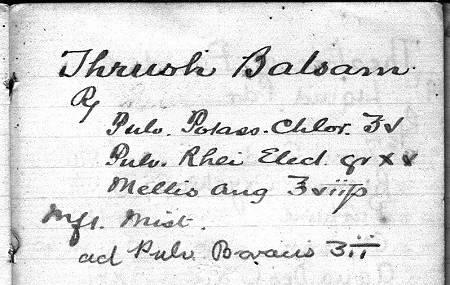 Thrush Balsam.
℞
Pulv. Potass. Chlor. ʒv
Pulv. Rhei Elect. gr xv
Mellis Ang ʒviiſs
Mft. Mist.
ad Pulv. Boracis ʒii